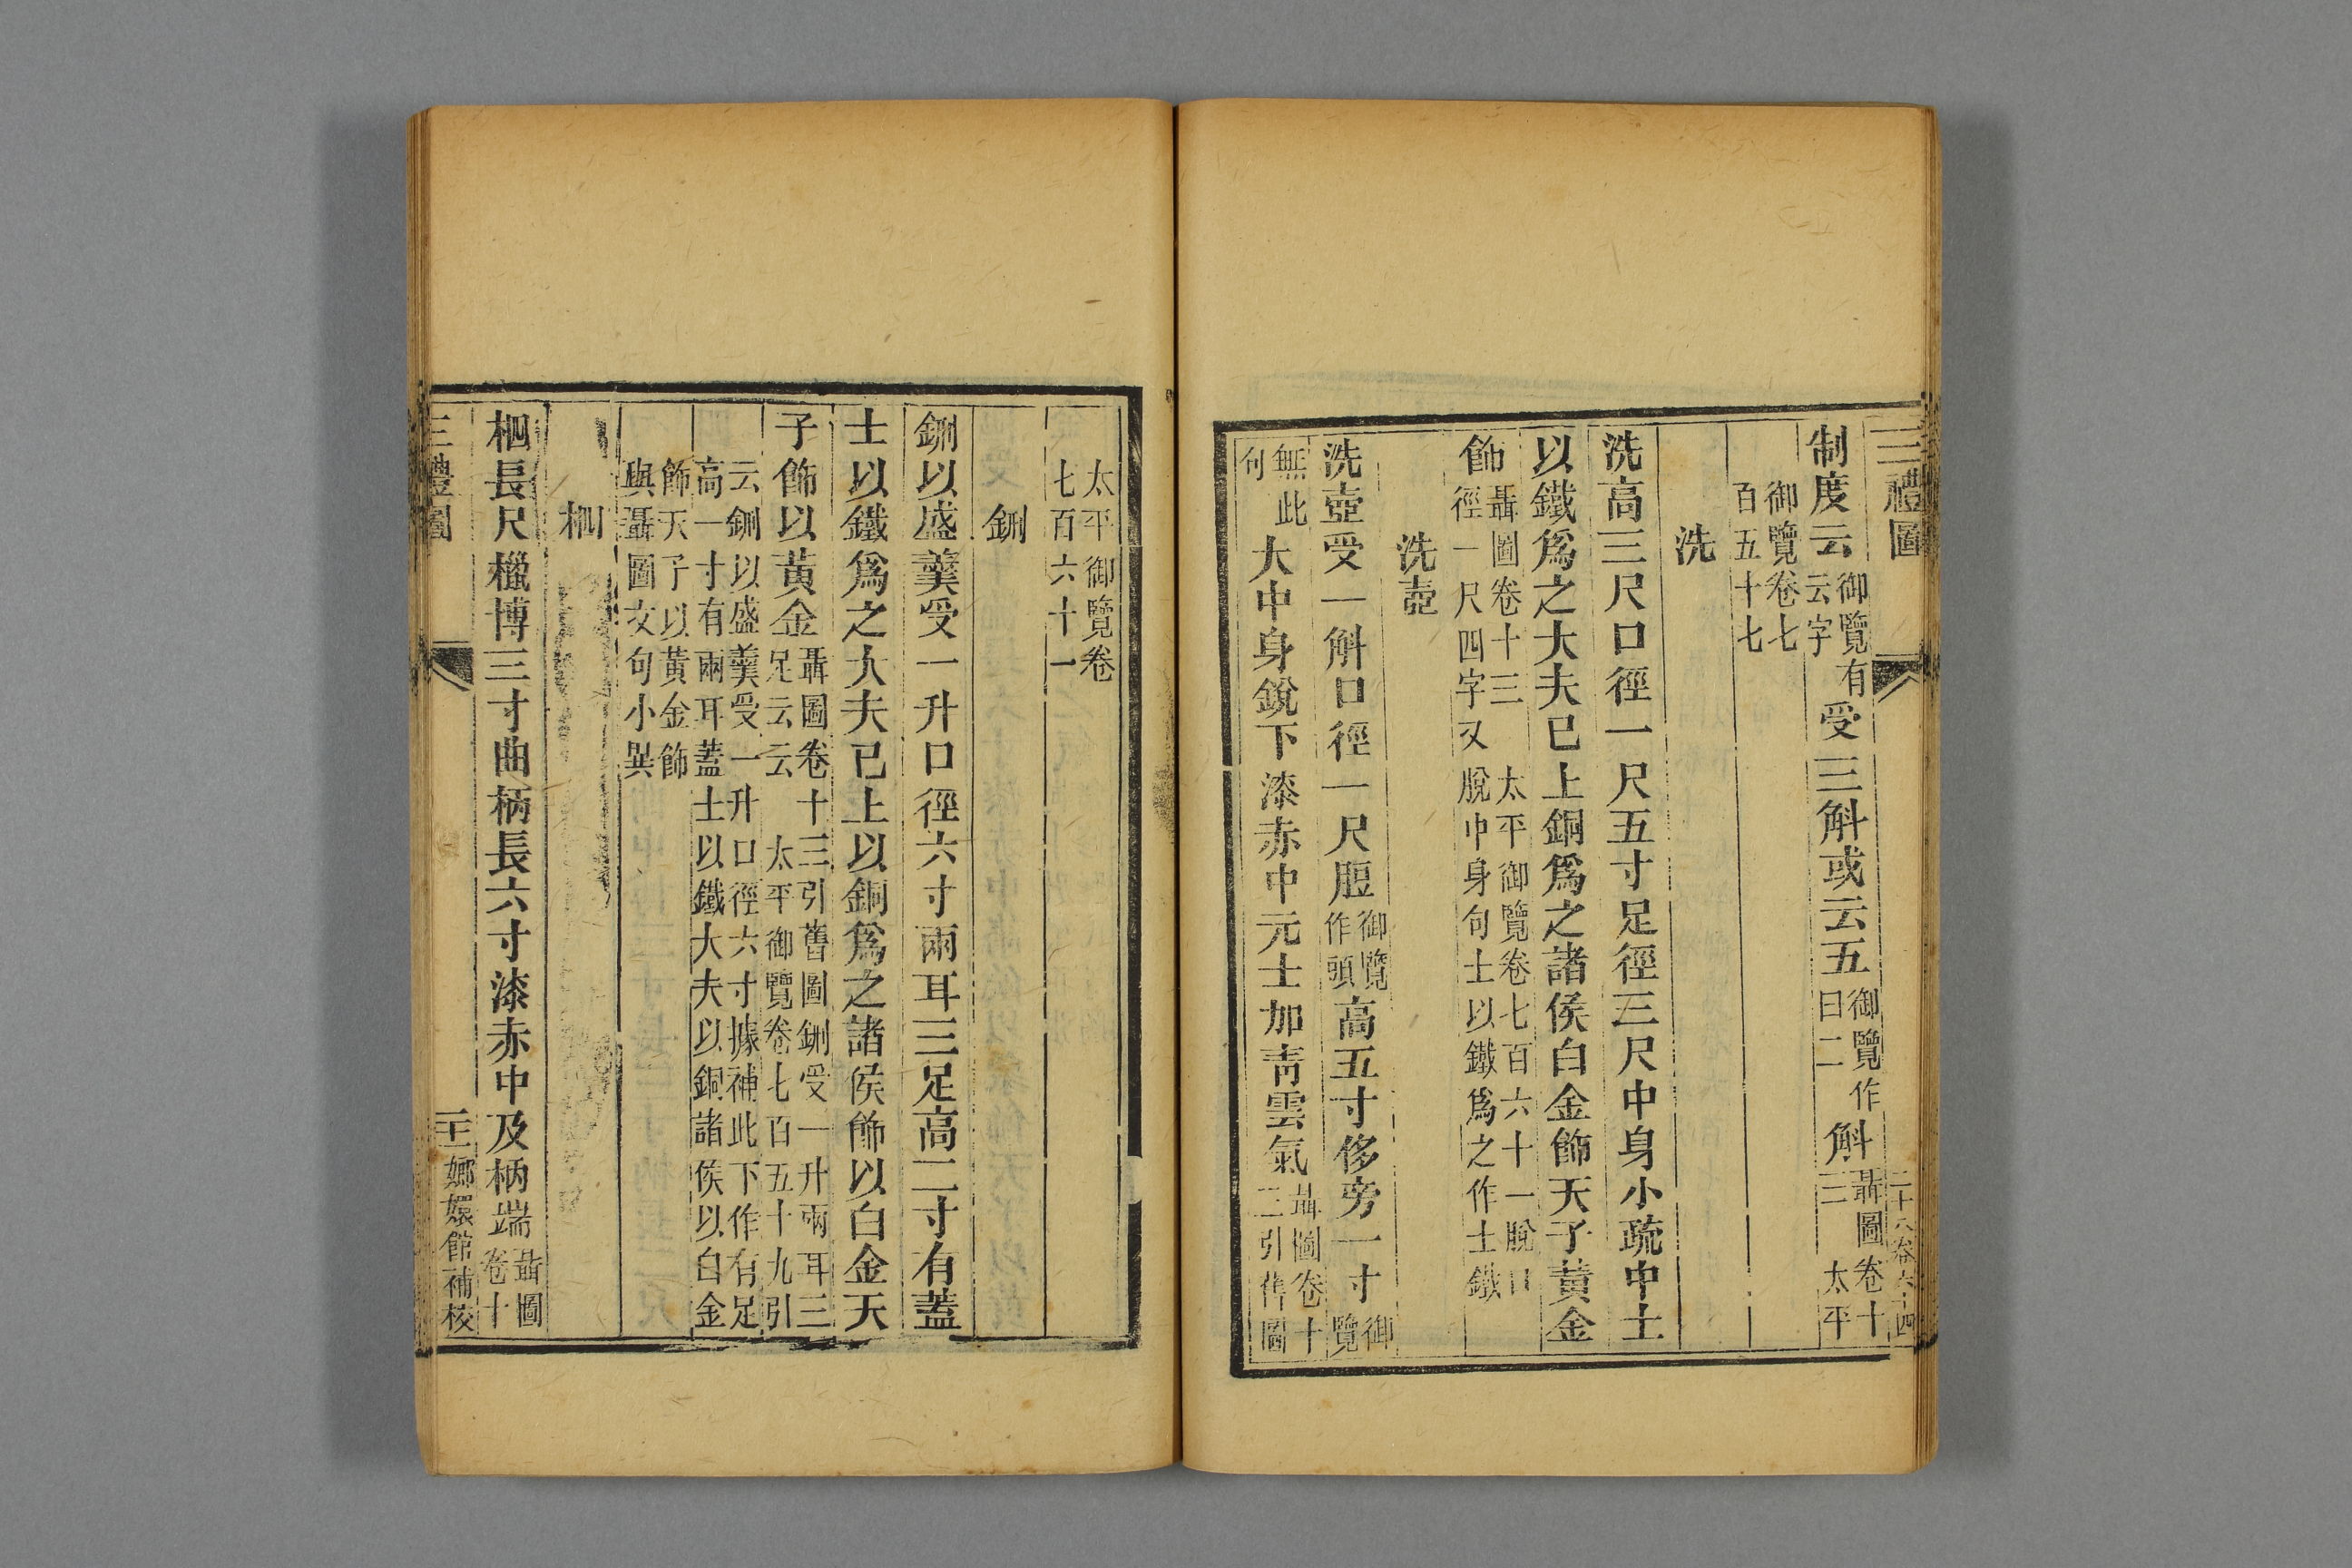 三禮圖
二十八卷六十四
制度云御覽有云字受三斛或云五御覽作曰二斛聶圖卷十三 太平
御覽卷七百五十七
洗
洗高三尺口徑一尺五寸足徑三尺中身小疏中士
以鐵爲之大夫已上銅爲之諸侯白金飾天子黃金
飾聶圖卷十三 太平御覽卷七百六十一脫口徑一尺四字又脫中身句士以鐵爲之作士鐵
洗壺
洗壺受一斛口徑一尺脰御覽作頭高五寸侈旁一寸御覽
無此句大中身銳下漆赤中元士加靑雲氣聶圖卷十二引舊圖
太平御覽卷七百六十一
鉶
鉶以盛羹受一升口徑六寸兩耳三足高二寸有蓋
士以鐵爲之大夫已上以銅爲之諸侯飾以白金天
子飾以黃金聶圖卷十三引舊圖鉶受一升兩耳三足云云 太平御覽卷七百五十九引
云鉶以盛羹受一升口徑六寸據補此下作有足高一寸有兩耳蓋士以鐵大夫以銅諸侯以白金
飾天子以黃金飾與聶圖文句小異
柶
柶長尺櫼博三寸曲柄長六寸漆赤中及柄端聶圖卷十
三禮圖
嫏嬛館補校